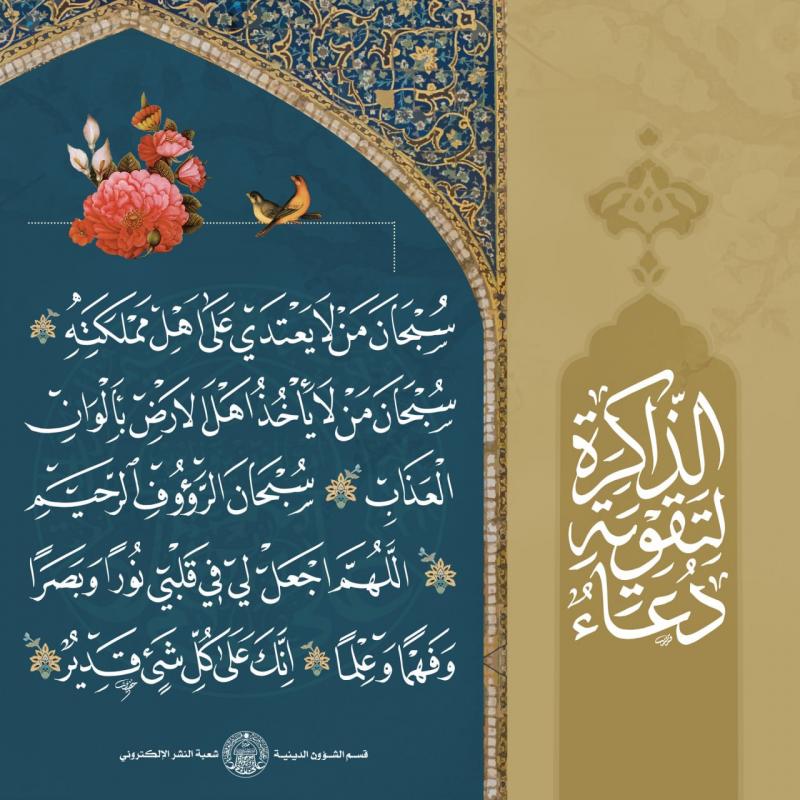 دُعَاءُ
لِتَقْوِيَةِ
الذَّاكِرَةِ
سُبْحَانَ مَنْ لَا يَعْتَدِي عَلَى اَهْلِ مَمْلَكَتِهِ
سُبْحَانَ مَنْ لَا يَأْخُذُ اَهْلَ الْاَرْضِ بِأَلْوَانِ
الْعَذَابِ سُبْحَانَ الرَّؤُوفِ الرَّحِيمِ
اللَّهُمَّ اجْعَلْ لِي فِي قَلْبِي نُورًا وَبَصَرًا
وَفَهْمًا وَعِلْمًا اِنَّكَ عَلَى كُلِّ شَيْءٍ قَدِيرٌ
قسم الشؤون الدينية شعبة النشر الإلكتروني